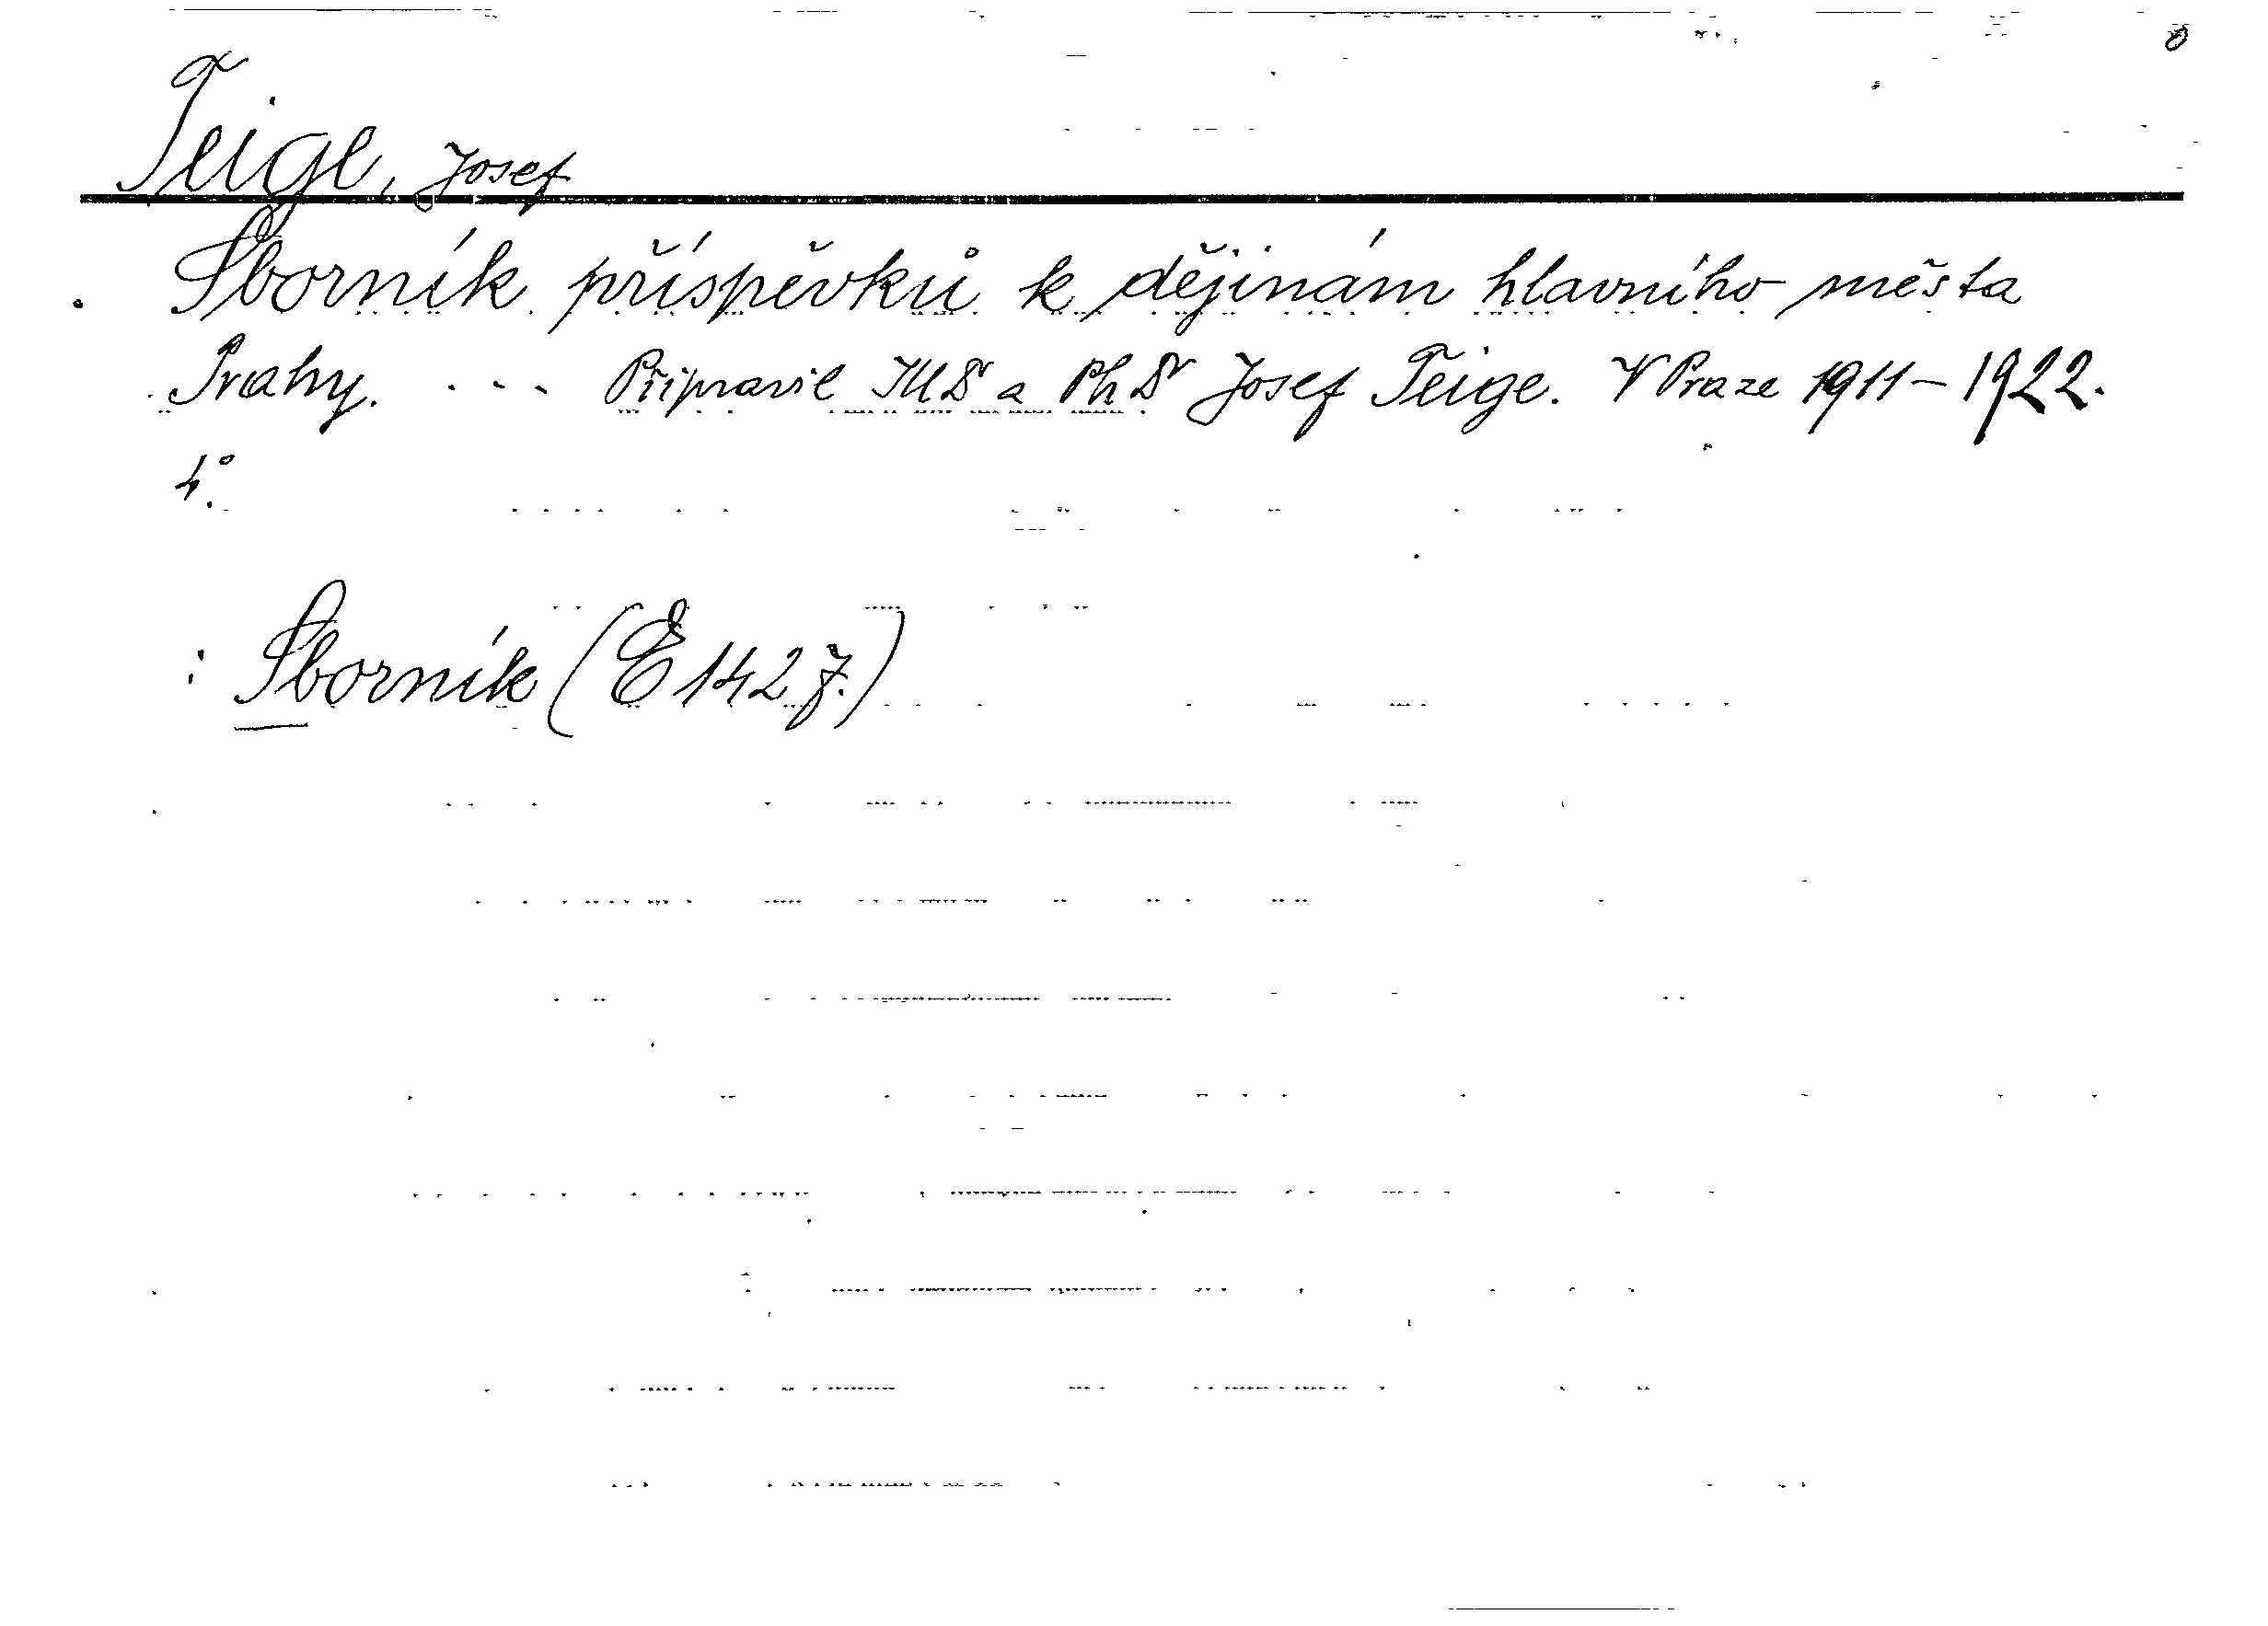 Teige, Josef
Sborník příspěvků k dějinám hlavního města
Prahy. ... Připravil JUDr a PhDr Josef Teige. V Praze 1911-1922.
4°.
: Sborník (E 142 7.)